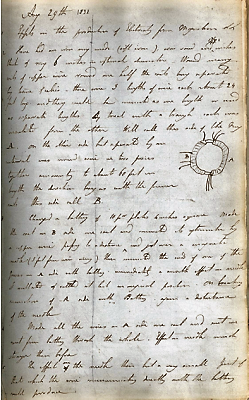 Aug 29th 1831
Expts on the production of Electricity from Magnetism etc
Have had an iron ring made (soft iron), iron round and
thick & ring 6 inches in external diameter. Wound many
coils of copper wire round one half the coils being separated
by twine & calico - there were 3 lengths of wire each about 24
feet long and they could be connected as one length or used
as separate lengths. By trial with a trough each was
insulated from the other. Will call this side of the Ring
A. on the other side but separated by an
interval was wound wire in two pieces
together amounting to about 60 feet in
length the direction being as with the former
coils this side call B
Charged a battery of 10 pr plates 4 inches square. Made
the coil on B side one coil and connected its extremities by
a copper wire passing to a distance and just over a magnetic
needle (3 feet from iron ring) then connected the ends of one of the
pieces on A side with battery immediately a sensible effect on needle
it oscillated & settled at last in original position. On breaking
connection of A side with Battery again a disturbance
of the needle
Made all the wires on A side one coil and sent current
from battery through the whole. Effect on needle much
stronger than before
The effect on the needle then but a very small part of
that which the wire communicating directly with the battery
could produce
A
B